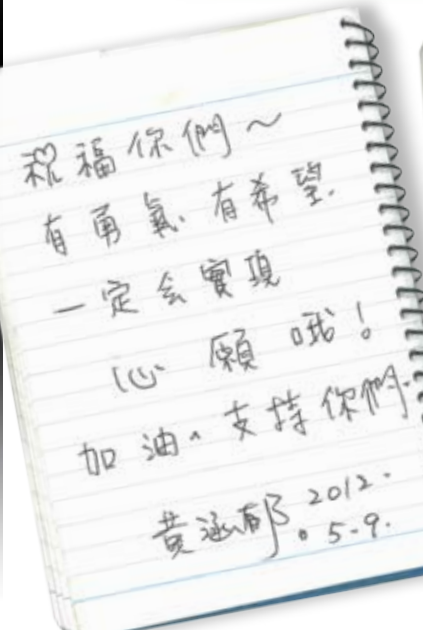 祝福你們～
有勇氣、有希望.
一定会實現
心願哦！
加油、支持你們.
黃涵郁 2012.
5.9.